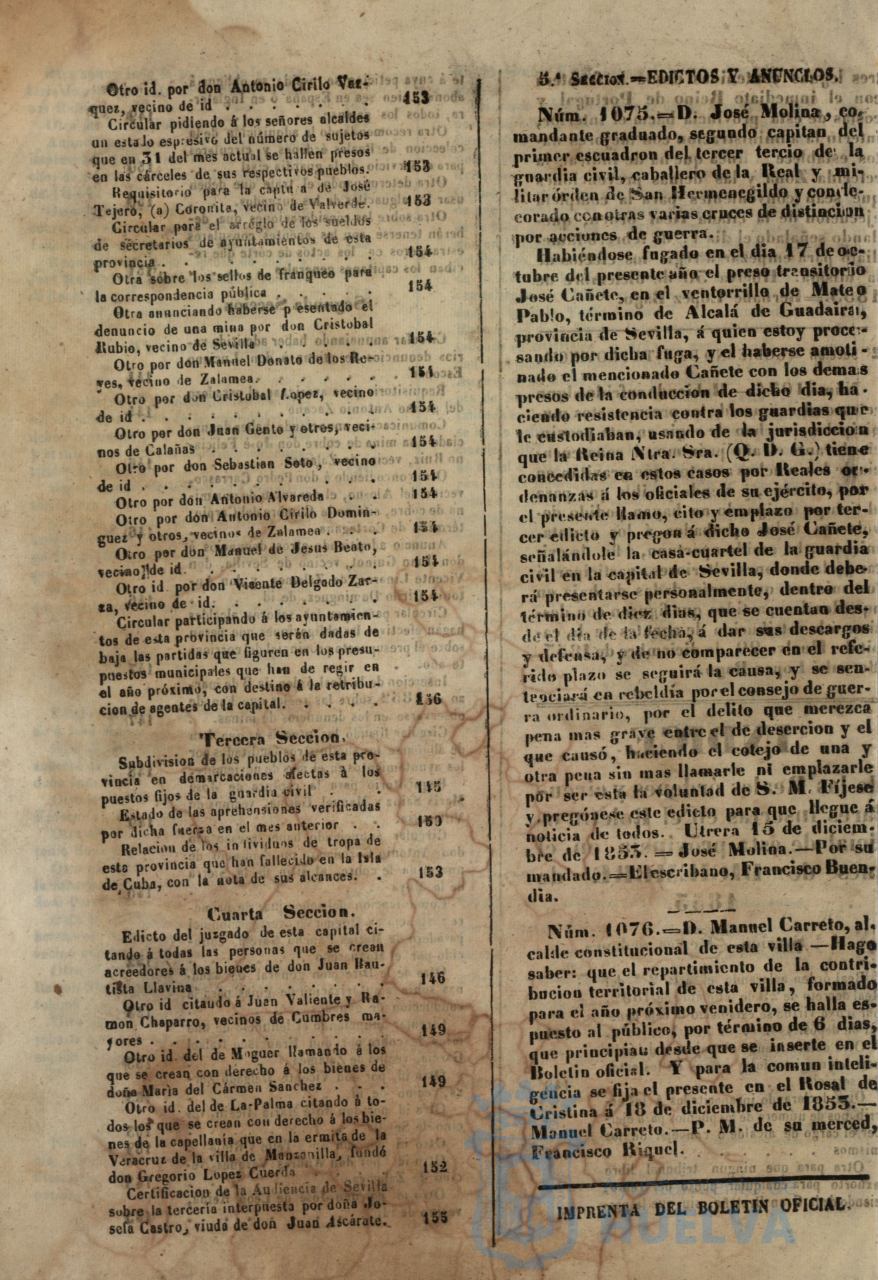 Otro id. por don Antonio Cirilo Vaz-
quez, vecino de id . . . . . 153
Circular pidiendo á los señores alcaldes
un estado espresivo del número de sujetos
que en 31 del mes actual se hallen presos
en las cárceles de sus respectivos pueblos. 153
Requisitorio para la captu a de José
Tejero, (a) Coronita, vecino de Valverde. 153
Circular para el arreglo de los sueldos
de secretarios de ayuntamientos de esta
provincia . . . . . . . 154
Otra sobre los sellos de franqueo para
la correspondencia pública . . . . 154
Otra anunciando haberse p esentado el
denuncio de una mina por don Cristobal
Rubio, vecino de Sevilla . . . . 154
Otro por don Manuel Donato de los Re-
yes, vecino de Zalamea. . . . . 154
Otro por don Cristobal Lopez, vecino
de id . . . . . . . . 154
Otro por don Juan Gento y otros, veci-
nos de Calañas . . . . . . 154
Otro por don Sebastian Soto, vecino
de id . . . . . . . . 154
Otro por don Antonio Alvareda . . 154
Otro por don Antonio Cirilo Domin-
guez y otros, vecinos de Zalamea . . . 154
Otro por don Manuel de Jesus Beato,
vecino de id. . . . . . . 154
Otro id. por don Vicente Delgado Zar-
za, vecino de id. . . . . . 154
Circular participando á los ayuntamien-
tos de esta provincia que serán dadas de
baja las partidas que figuren en los presu-
puestos municipales que han de regir en
el año próximo, con destino á la retribu-
cion de agentes de la capital. . . . . 156
Tercera Seccion.
Subdivision de los pueblos de esta pro-
vincia en demarcaciones afectas à los
puestos fijos de la guardia civil . . 145
Estado de las aprehensiones verificadas
por dicha fuerza en el mes anterior . . 150
Relacion de los in lividuos de tropa de
esta provincia que han fallecido en la Isla
de Cuba, con la nota de sus alcances. . 153
Cuarta Seccion.
Edicto del juzgado de esta capital ci-
tando á todas las personas que se crean
acreedores á los bienes de don Juan Bau-
tista Llavina . . . . . . 146
Otro id citando á Juan Valiente y Ra-
mon Chaparro, vecinos de Cumbres ma-
yores . . . . . . . . 149
Otro id. del de Moguer llamando á los
que se crean con derecho á los bienes de
doña Marìa del Cármen Sanchez . . . 149
Otro id. del de La-Palma citando á to-
dos los que se crean con derecho á los bie-
nes de la capellanía que en la ermita de la
Veracruz de la villa de Manzanilla, fundó
don Gregorio Lopez Cuerda . . . 152
Certificacion de la Audiencia de Sevilla
sobre la tercería interpuesta por doña Jo-
sefa Castro, viuda de don Juan Ascárate. 155
5.ª Seccion.=EDICTOS Y ANUNCIOS.
Núm. 1075.=D. José Molina, co-
mandante graduado, segundo capitan del
primer escuadron del tercer tercio de la
guardia civil, caballero de la Real y mi-
litar órden de San Hermenegildo y conde-
corado con otras varias cruces de distincion
por acciones de guerra.
Habiéndose fugado en el dia 17 de oc-
tubre del presente año el preso transitorio
José Cañete, en el ventorrillo de Mateo
Pablo, término de Alcalá de Guadaira,
provincia de Sevilla, á quien estoy proce-
sando por dicha fuga, y el haberse amoti-
nado el mencionado Cañete con los demas
presos de la conduccion de dicho dia, ha-
ciendo resistencia contra los guardias que
le custodiaban, usando de la jurisdiccion
que la Reina Ntra. Sra. (Q. D. G.) tiene
concedidas en estos casos por Reales or-
denanzas á los oficiales de su ejército, por
el presente llamo, cito y emplazo por ter-
cer edicto y pregon á dicho José Cañete,
señalándole la casa-cuartel de la guardia
civil en la capital de Sevilla, donde debe-
rá presentarse personalmente, dentro del
término de diez dias, que se cuentan des-
de el dia de la fecha, á dar sus descargos
y defensa, y de no comparecer en el refe-
rido plazo se seguirá la causa, y se sen-
tenciará en rebeldía por el consejo de guer-
ra ordinario, por el delito que merezca
pena mas grave entre el de desercion y el
que causó, haciendo el cotejo de una y
otra pena sin mas llamarle ni emplazarle
por ser esta la voluntad de S. M. Fíjese
y pregónese este edicto para que llegue á
noticia de todos. Utrera 15 de diciem-
bre de 1853.=José Molina.—Por su
mandado.=El escribano, Francisco Buen-
dia.
Núm. 1076.=D. Manuel Carreto, al-
calde constitucional de esta villa—Hago
saber: que el repartimiento de la contri-
bucion territorial de esta villa, formado
para el año próximo venidero, se halla es-
puesto al público, por término de 6 dias,
que principiau desde que se inserte en el
Boletin oficial. Y para la comun inteli-
gencia se fija el presente en el Rosal de
Cristina á 18 de diciembre de 1853.—
Manuel Carreto.—P. M. de su merced,
Francisco Riquel.
IMPRENTA DEL BOLETIN OFICIAL.
HUELVA